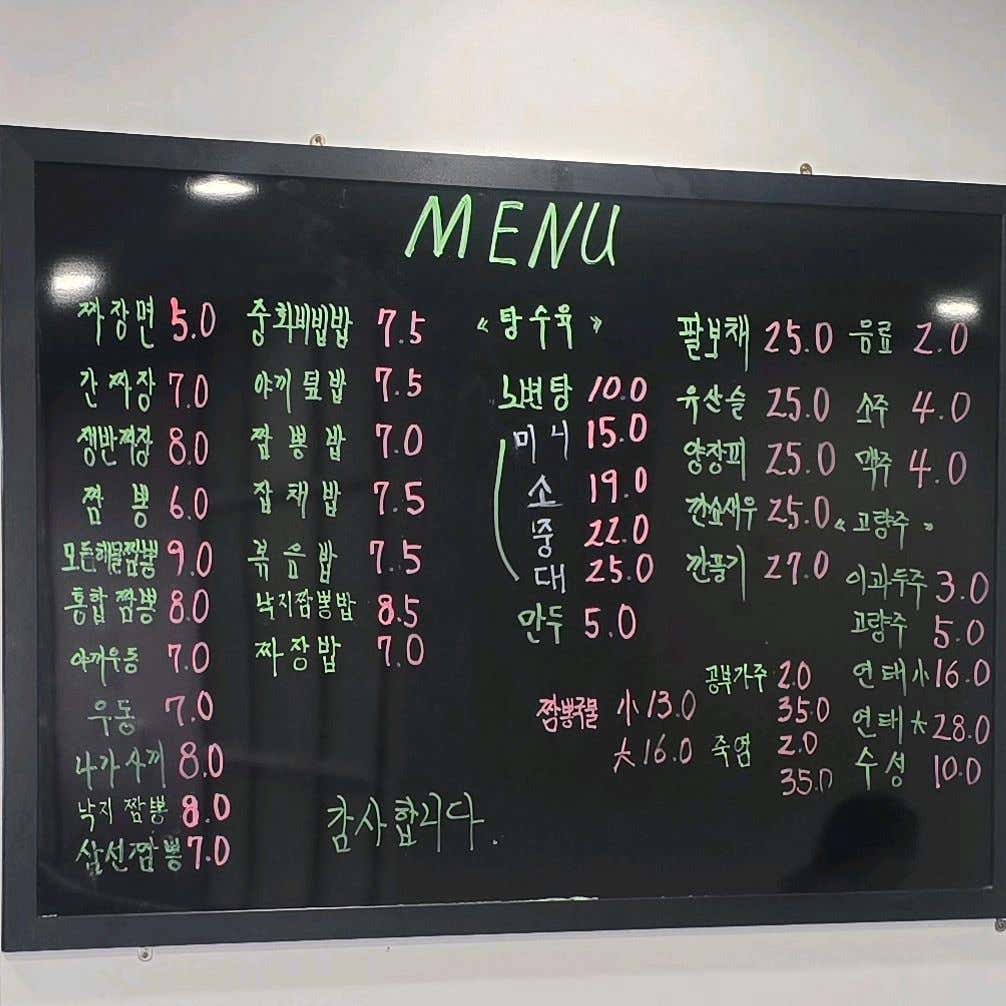 MENU
짜장면 5.0
간짜장 7.0
쟁반짜장 8.0
짬뽕 6.0
모든해물짬뽕 9.0
통합짬뽕 8.0
야끼우동 7.0
우동 7.0
나가사끼 8.0
낙지짬뽕 8.0
삼선짬뽕 7.0
중화비빔밥 7.5
야끼덮밥 7.5
짬뽕밥 7.0
잡채밥 7.5
볶음밥 7.5
낙지짬뽕밥 8.5
짜장밥 7.0
《탕수육》
노변탕 10.0
미니 15.0
소 19.0
중 22.0
대 25.0
만두 5.0
짬뽕국물 小 13.0
大 16.0
팔보채 25.0
유산슬 25.0
양장피 25.0
깐쇼새우 25.0
깐풍기 27.0
공부가주 2.0
35.0
죽엽 2.0
35.0
음료 2.0
소주 4.0
맥주 4.0
《고량주》
이과두주 3.0
고량주 5.0
연태 小 16.0
연태 大 28.0
수성 10.0
감사합니다.